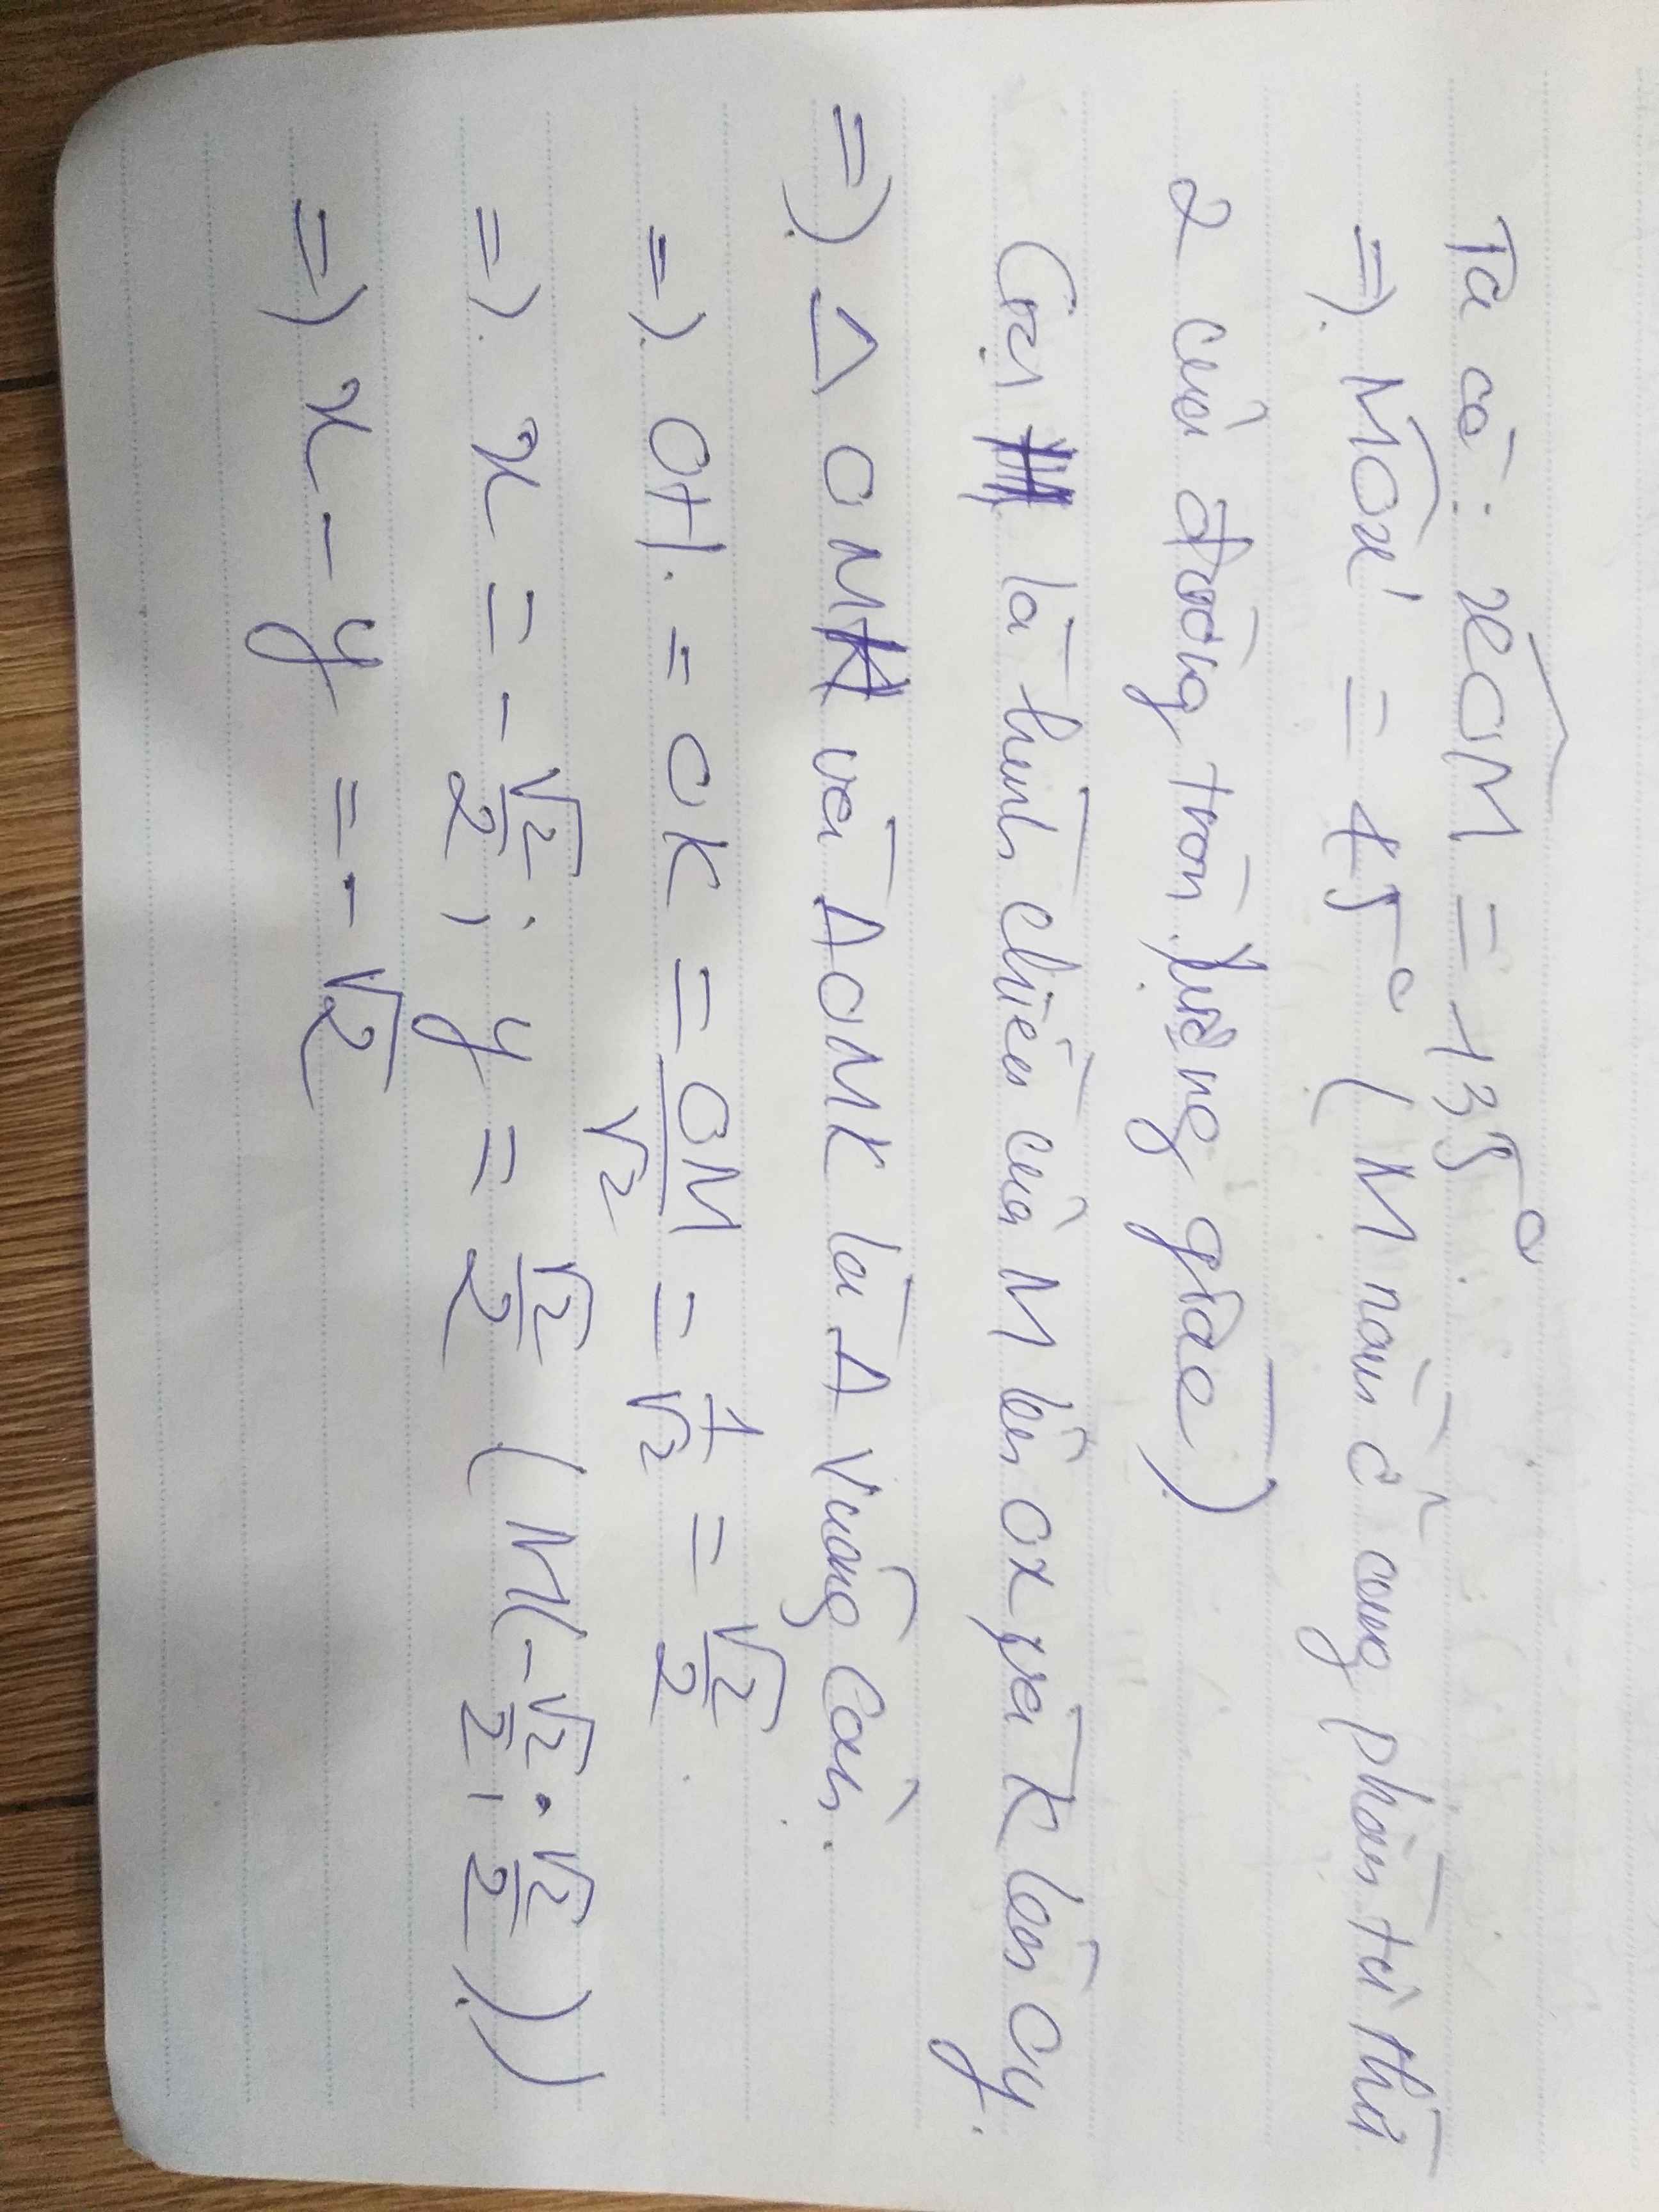 Ta có: xOM = 135°.
=> MOx' = 45° (M nằm ở cung phần tư thứ
2 của đường tròn lượng giác)
Gọi H là hình chiếu của M lên ox và K lên oy.
=> Δ OMH và Δ OMK là Δ vuông cân.
=> OH = OK = OM/√2 = 1/√2 = √2/2.
=> x = -√2/2; y = √2/2 (M(-√2/2; √2/2))
=> x - y = -√2